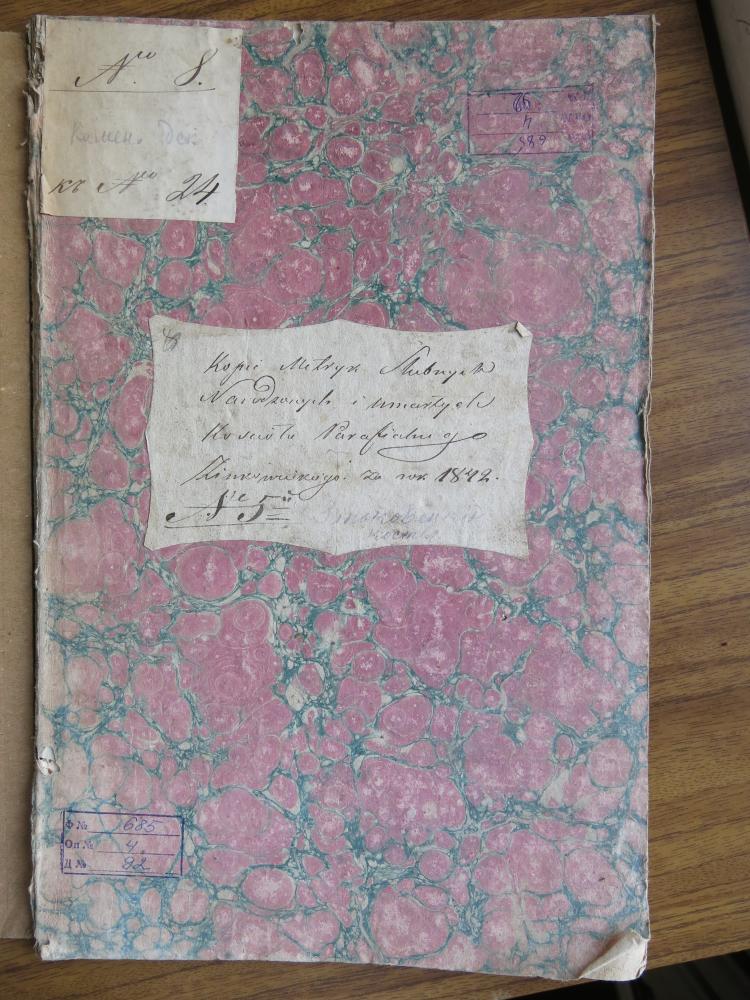 Nro 8.
Камен.
къ Nro 24
685
4
92
Kopie Metryk Ślubnych
Narodzonych i umarłych
Kościoła Parafialnego
Zinkowieckiego. za rok 1842.
N 5
костел
Ф № 685
Оп № 4.
Д № 92